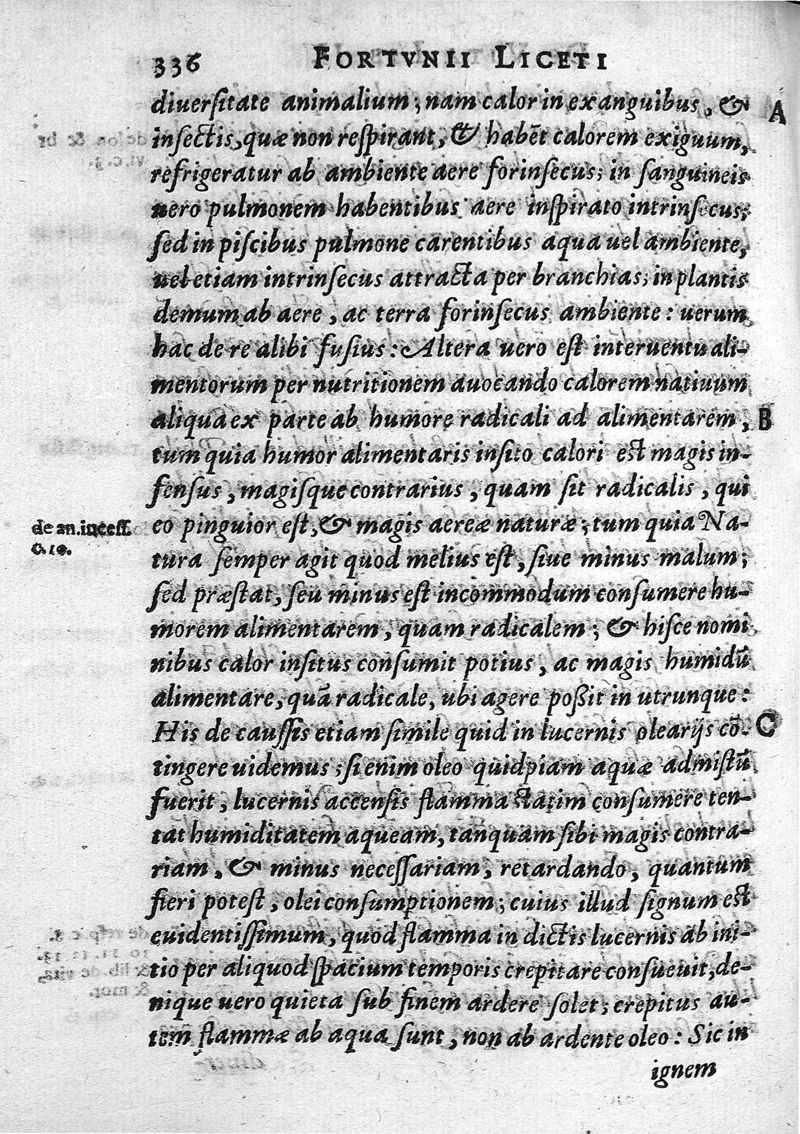 336 FORTVNII LICETI
diuersitate animalium; nam calor in exanguibus, & A
insectis, quæ non respirant, & habẽt calorem exiguum,
refrigeratur ab ambiente aere forinsecus; in sanguineis
uero pulmonem habentibus aere inspirato intrinsecus;
sed in piscibus pulmone carentibus aqua uel ambiente,
uel etiam intrinsecus attracta per branchias; in plantis
demum ab aere, ac terra forinsecus ambiente: uerum
hac de re alibi fusius: Altera uero est interuentu ali-
mentorum per nutritionem auocando calorem natiuum
aliqua ex parte ab humore radicali ad alimentarem, B
tum quia humor alimentaris insito calori est magis in-
fensus, magisque contrarius, quam sit radicalis, qui
de an.incess. eo pinguior est, & magis aereæ naturæ; tum quia Na-
c.10. tura semper agit quod melius est, siue minus malum;
sed præstat, seu minus est incommodum consumere hu-
morem alimentarem, quam radicalem; & hisce nomi
nibus calor insitus consumit potius, ac magis humidũ
alimentare, quã radicale, ubi agere poßit in utrunque:
His de caussis etiam simile quid in lucernis olearijs cõ- C
tingere uidemus; si enim oleo quidpiam aquæ admistũ
fuerit, lucernis accensis flamma statim consumere ten-
tat humiditatem aqueam, tanquam sibi magis contra-
riam, & minus necessariam, retardando, quantum
fieri potest, olei consumptionem; cuius illud signum est
euidentissimum, quod flamma in dictis lucernis ab ini-
tio per aliquod spacium temporis crepitare consueuit, de-
nique uero quieta sub finem ardere solet; crepitus au-
tem flammæ ab aqua sunt, non ab ardente oleo: Sic in
ignem